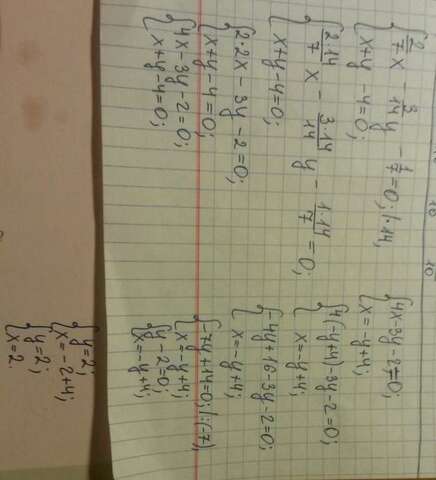 10
10
{ 2/7 x 3/14 y - 1/7 = 0; |·14,
x+y-4=0;
{ 2·14/7 x - 3·14/14 y - 1·14/7 = 0;
x+y-4=0;
{ 2·2x - 3y - 2=0;
x+y-4=0;
{ 4x-3y-2=0;
x+y-4=0;
{ 4x-3y-2=0;
x=-y+4;
{ 4(-y+4)-3y-2=0;
x=-y+4;
{ -4y+16-3y-2=0;
x=-y+4;
{ -7y+14=0; |:(-7),
x=-y+4;
{ y-2=0;
x=-y+4;
{ y=2;
x=-2+4;
{ y=2;
x=2.